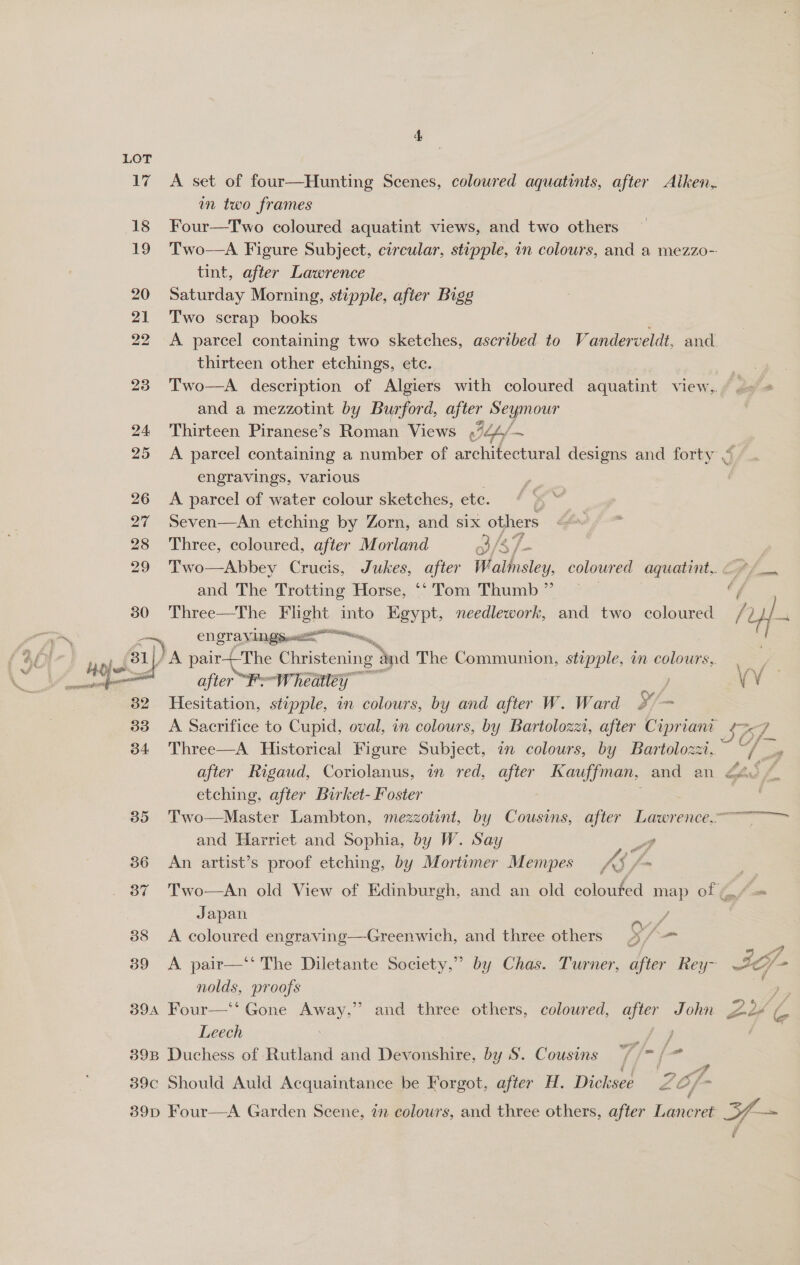 4
LOT
17 A set of four—Hunting Scenes, coloured aquatints, after Alken,
in two frames
18 Four—Two coloured aquatint views, and two others
19 Two—A Figure Subject, circular, stipple, in colours, and a mezzo-
tint, after Lawrence
20 Saturday Morning, stipple, after Bigg
21 Two scrap books
22 A parcel containing two sketches, ascribed to Vanderveldt, and
thirteen other etchings, etc.
23 Two—A description of Algiers with coloured aquatint view,
and a mezzotint by Burford, after Seymour
24 Thirteen Piranese's Roman Views
25 A parcel containing a number of architectural designs and forty
engravings, various
26 A parcel of water colour sketches, etc.
27 Seven—An etching by Zorn, and six others
28 Three, coloured, after Morland
29 Two—Abbey Crucis, Jukes, after Walmsley, coloured aquatint,
and The Trotting Horse, “Tom Thumb”
30 Three—The Flight into Egypt, needlework, and two coloured
engravings
31 A pair—The Christening and The Communion, stipple, in colours,
after F. Wheatley
32 Hesitation, stipple, in colours, by and after W. Ward
33 A Sacrifice to Cupid, oval, in colours, by Bartolozzi, after Cipriani
34 Three—A Historical Figure Subject, in colours, by Bartolozzi,
after Rigaud, Coriolanus, in red, after Kauffman, and an
etching, after Birket-Foster
35 Two—Master Lambton, mezzotint, by Cousins, after Lawrence,
and Harriet and Sophia, by W. Say
36 An artist's proof etching, by Mortimer Mempes
37 Two—An old View of Edinburgh, and an old coloured map of
Japan
38 A coloured engraving—Greenwich, and three others
39 A pair—“The Diletante Society,” by Chas. Turner, after Rey-
nolds, proofs
39A Four—“Gone Away,” and three others, coloured, after John
Leech
39B Duchess of Rutland and Devonshire, by S. Cousins
39C Should Auld Acquaintance be Forgot, after H. Dicksee
39D Four—A Garden Scene, in colours, and three others, after Lancret